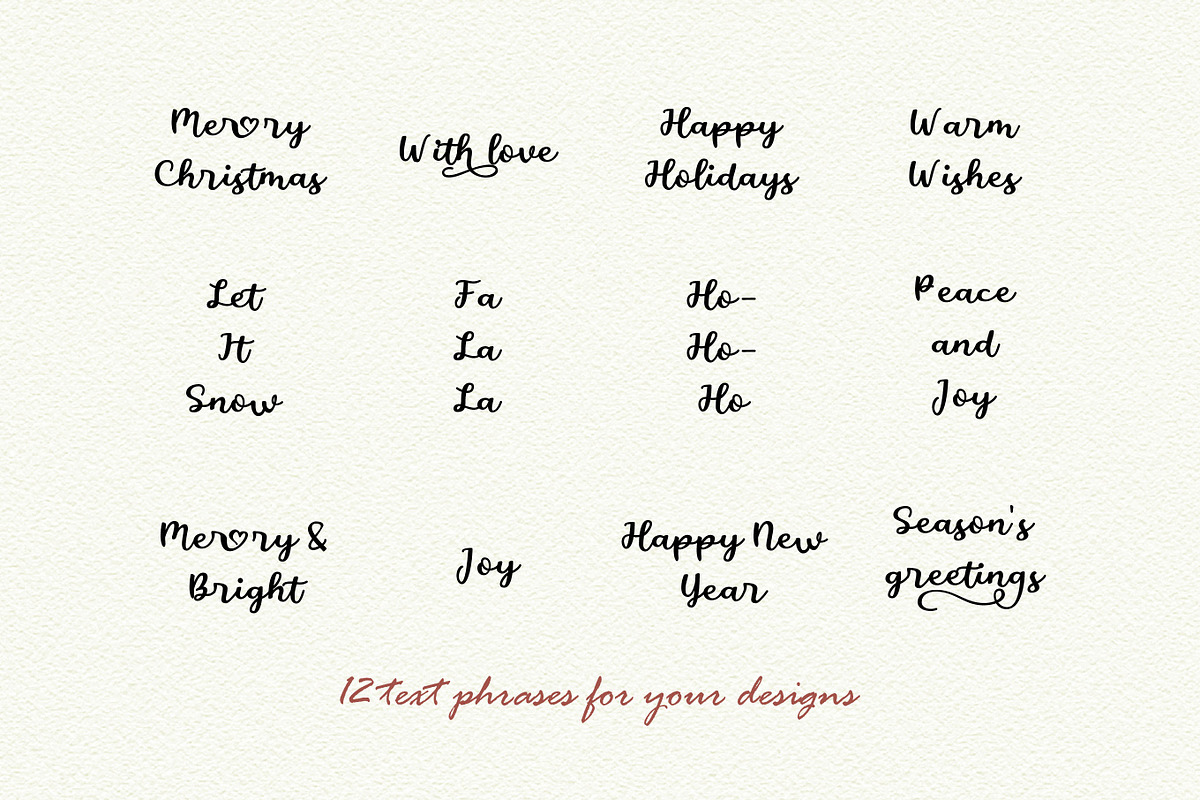 Merry
Christmas
With love
Happy
Holidays
Warm
Wishes
Let
It
Snow
Fa
La
La
Ho-
Ho-
Ho
Peace
and
Joy
Merry &
Bright
Joy
Happy New
Year
Season's
greetings
12 text phrases for your designs